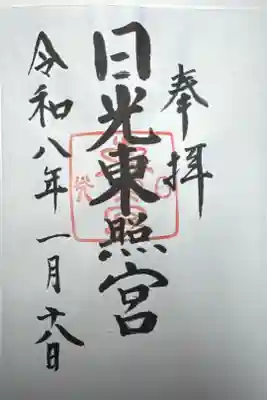 奉拝
日光東照宮
令和八年一月十八日